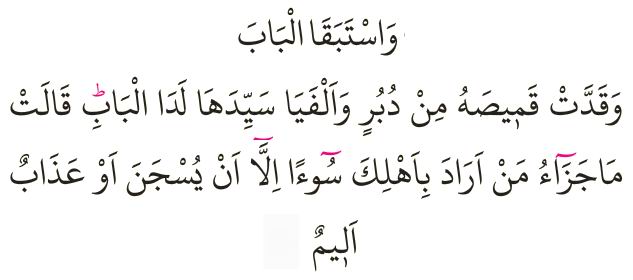 وَاسْتَبَقَا الْبَابَ
وَقَدَّتْ قَمٖيصَهُ مِنْ دُبُرٍ وَاَلْفَيَا سَيِّدَهَا لَدَا الْبَابِۜ قَالَتْ
مَاجَزَٓاءُ مَنْ اَرَادَ بِاَهْلِكَ سُٓوءًا اِلَّٓا اَنْ يُسْجَنَ اَوْ عَذَابٌ
اَلٖيمٌ